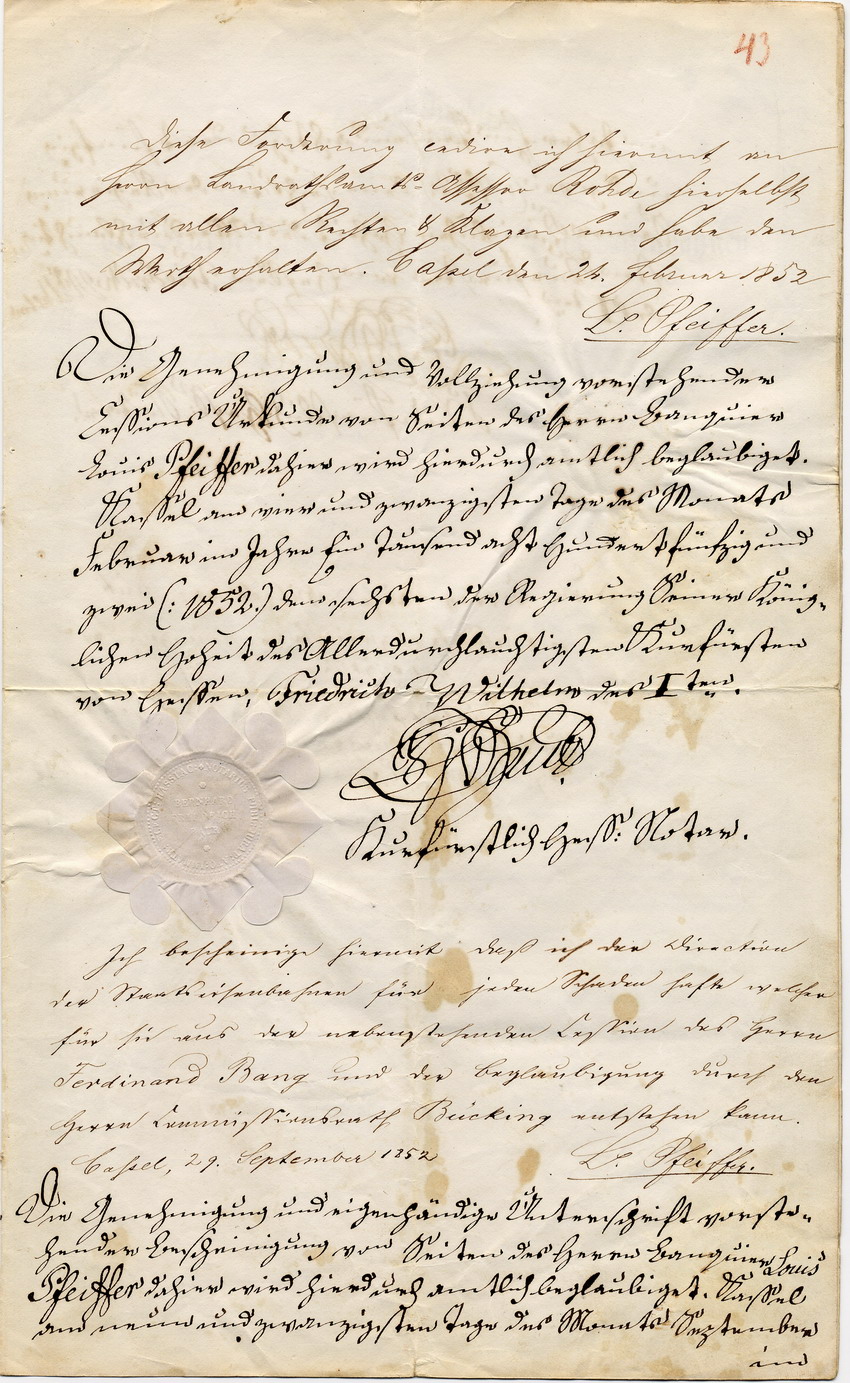 43
Diese Forderung cedire ich hiermit an
Herrn Landrathsamts-Assessor Rohde hierselbst
mit allen Rechten & Klagen und habe den
Werth erhalten. Cassel den 24. Februar 1852
L. Pfeiffer.
Die Genehmigung und Vollziehung vorstehender
Cessions Urkunde von Seiten des Herrn Banquier
Louis Pfeiffer dahier wird hierdurch amtlich beglaubiget.
Kassel am vier und zwanzigsten Tage des Monats
Februar im Jahre Ein Tausend acht Hundert fünfzig und
zwei (: 1852.) dem sechsten der Regierung Seiner König-
lichen Hoheit des Allerdurchlauchtigsten Kurfürsten
von Hessen, Friedrich-Wilhelm des I ten.
Kurfürstlich Hess: Notar.
Ich bescheinige hiermit daß ich der Direction
der Staatseisenbahnen für jeden Schaden hafte welcher
für sie aus der nebenstehenden Cession des Herrn
Ferdinand Bang und der Beglaubigung durch den
Herrn Commissionsrath Bücking entstehen kann.
Cassel, 29. September 1852
L. Pfeiffer.
Die Genehmigung und eigenhändige Unterschrift vorste-
hender Bescheinigung von Seiten des Herrn Banquier Louis
Pfeiffer dahier wird hierdurch amtlich beglaubiget. Kassel
am neun und zwanzigsten Tage des Monats September
im